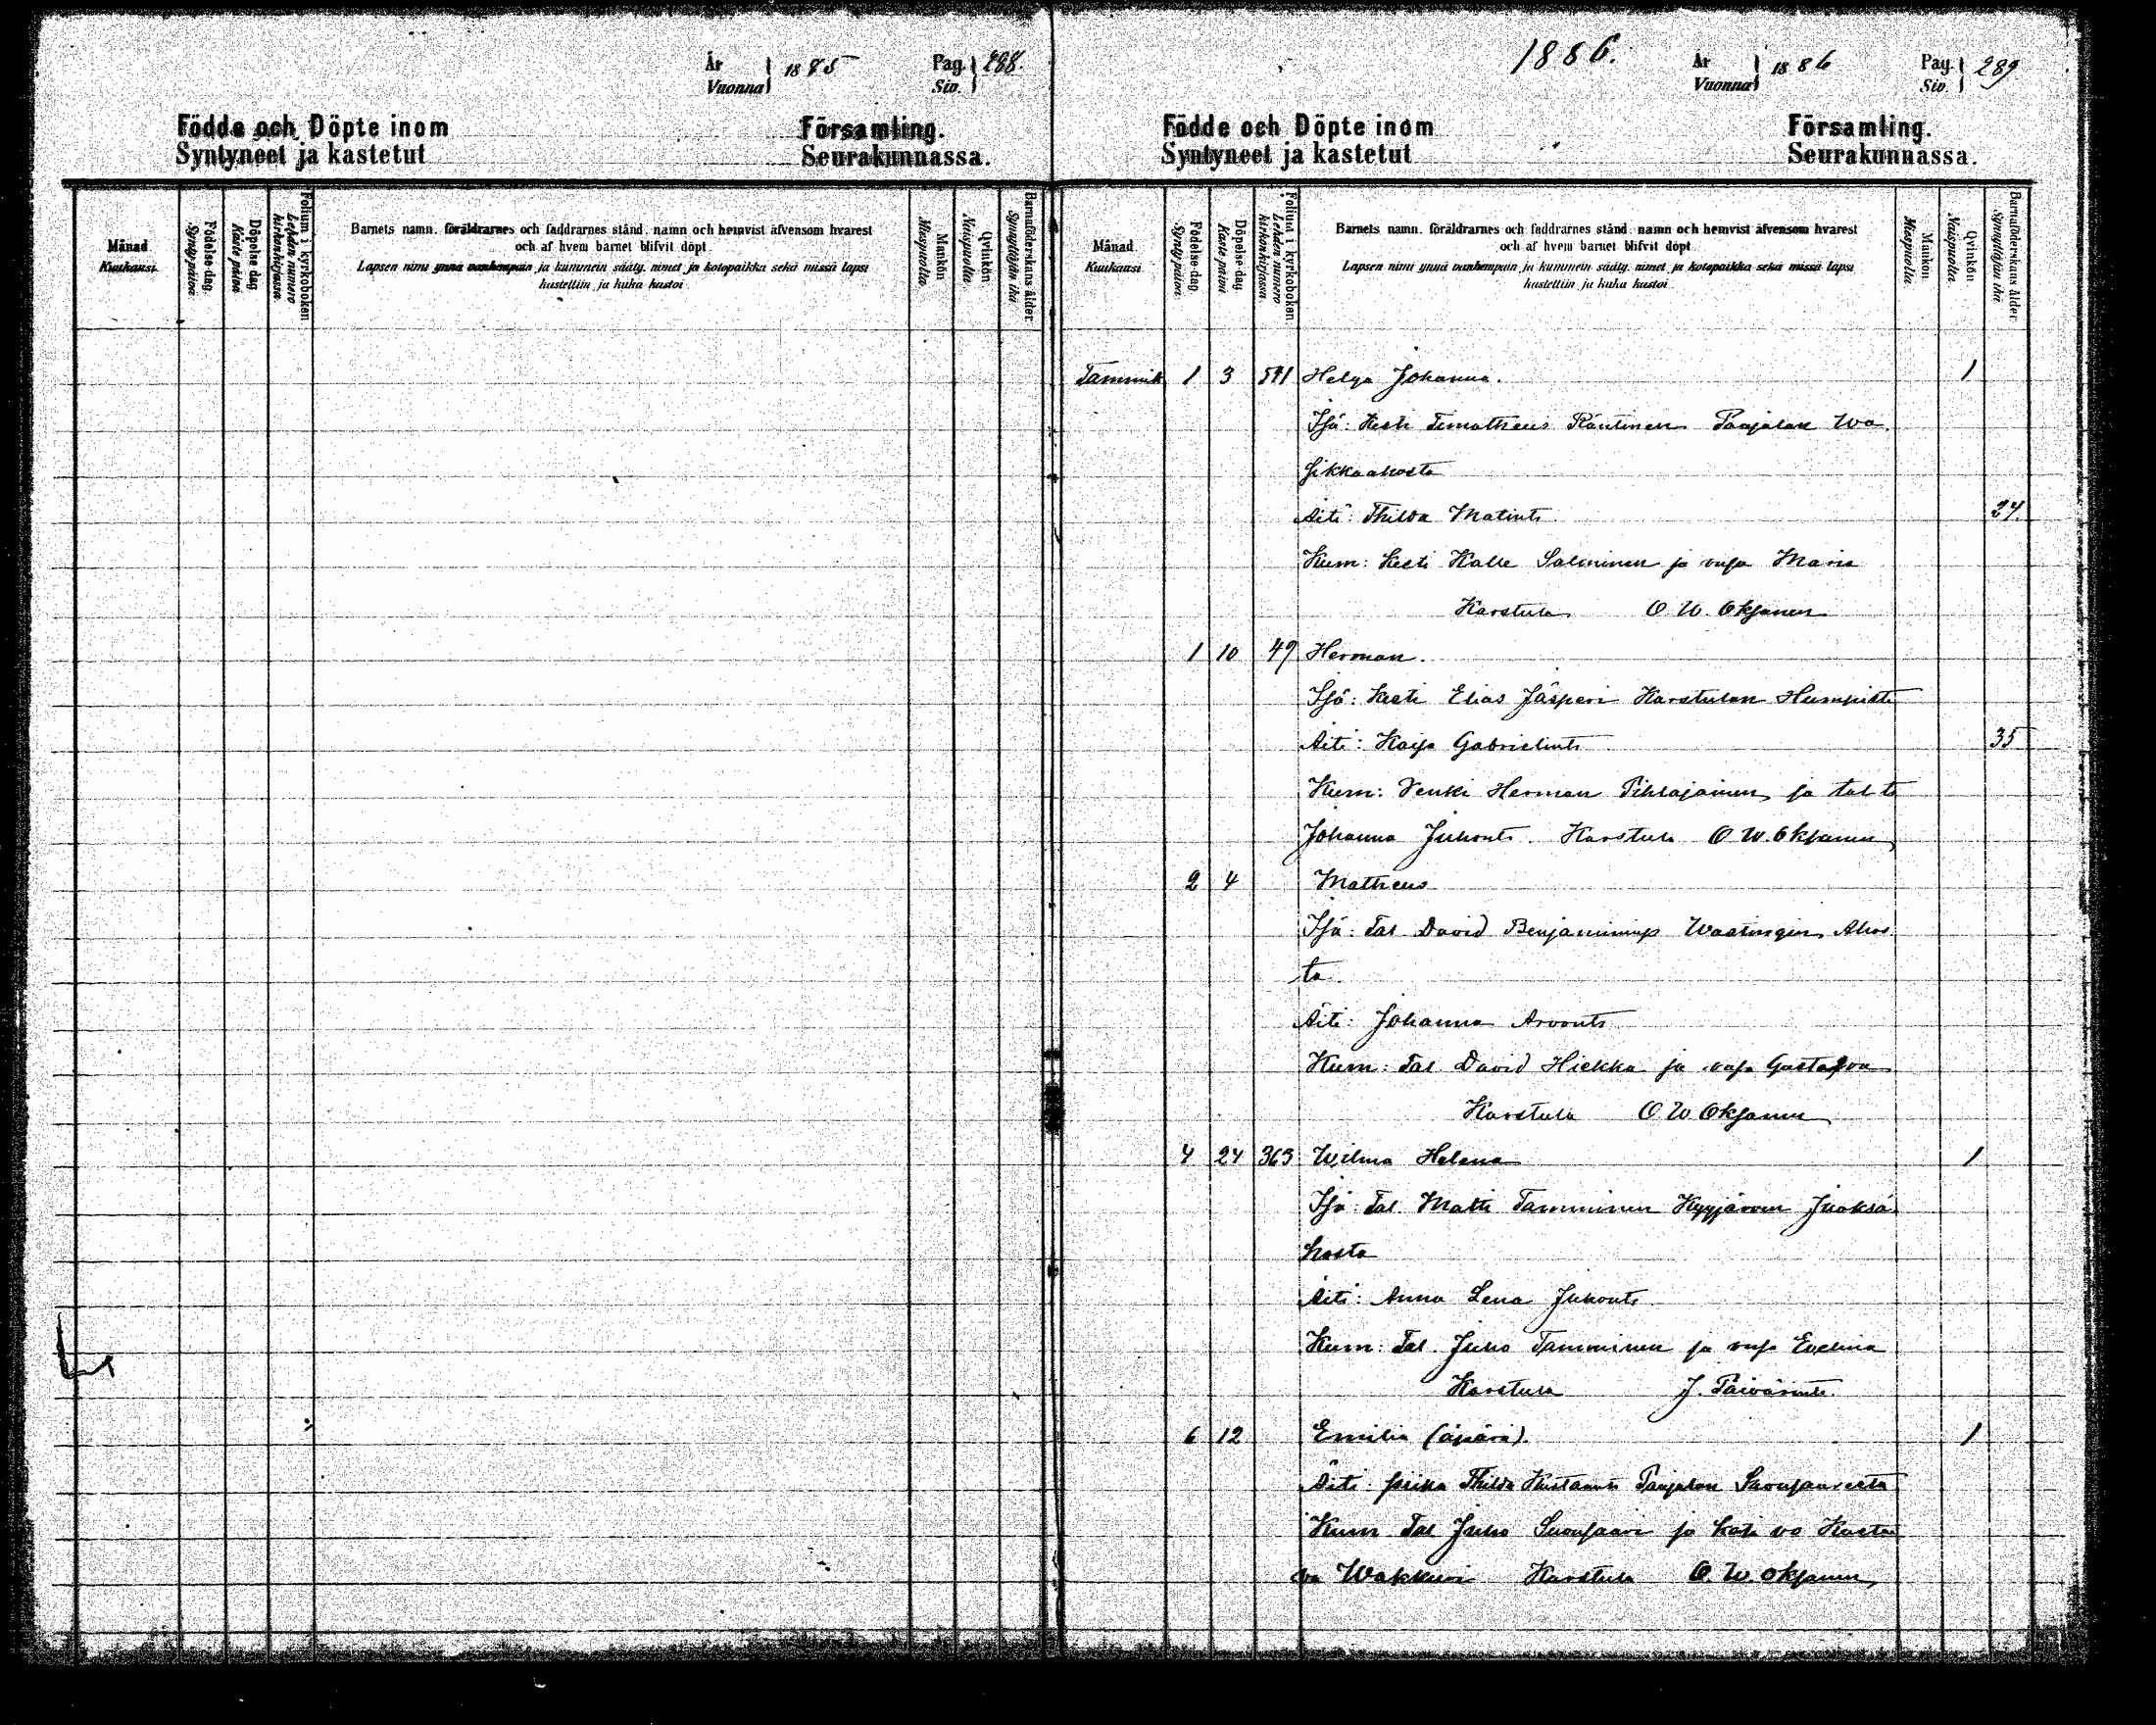 År
Vuonna } 1885 Pag. Siv. } 288.
Födde och Döpte inom Församling.
Syntyneet ja kastetut Seurakunnassa.
Månad. Kuukausi.
Födelse-dag. Synty päivä.
Döpelse-dag. Kaste päivä
Folium i kyrkoboken. Lehden numero kirkonkirjassa.
Barnets namn, föräldrarnes och faddrarnes stånd, namn och hemvist äfvensom hvarest
och af hvem barnet blifvit döpt.
Lapsen nimi ynnä vanhempain ja kummein sääty, nimet ja kotopaikka sekä missä lapsi
kastettiin ja kuka kastoi.
Mankön. Miespuolta.
Qvinkön. Naispuolta.
Barnaföderskans ålder. Synnyttäjän ikä.
1886.
År
Vuonna } 1886 Pag. Siv. } 289
Födde och Döpte inom Församling.
Syntyneet ja kastetut Seurakunnassa.
Månad. Kuukausi.
Födelse-dag. Synty päivä.
Döpelse-dag. Kaste päivä
Folium i kyrkoboken. Lehden numero kirkonkirjassa.
Barnets namn, föräldrarnes och faddrarnes stånd, namn och hemvist äfvensom hvarest
och af hvem barnet blifvit döpt.
Lapsen nimi ynnä vanhempain ja kummein sääty, nimet ja kotopaikka sekä missä lapsi
kastettiin ja kuka kastoi.
Mankön. Miespuolta.
Qvinkön. Naispuolta.
Barnaföderskans ålder. Synnyttäjän ikä.
Tammik 1 3 Helga Johanna. 1
Isä: Kesti Timotheus Räntinen Paajalan Wa
sikkaahosta
Äiti: Thilda Matint. 24.
Kum: Kesti Kalle Salminen ja vmsa Maria
Karstula O. W. Oksanen
1 10 49 Herman.
Isä: Kesti Elias Jäsperi Karstulan Humpista
Äiti: Kaisa Gabrielint. 35
Kum: Renki Herman Pihlajainen ja tal t.
Johanna Juhont. Karstula O W. Oksanen
2 4 Matheus
Isä: Tal. David Benjamininp Wastingin Ahos
ta
Äiti: Johanna Arvont.
Kum: Tal David Hiekka ja vmsa Gustafva
Karstula O W Oksanen
4 24 363 Wilma Helena 1
Isä: Tal. Matti Tamminen Kyyjärven Juoksa
hosta
Äiti: Anna Lena Juhont.
Kum: Tal. Juho Tamminen ja vmsa Evelina
Karstula J. Päivärinta.
6 12 Emilia (äpärä). 1
Äiti: piika Thilda Kustaant. Paajalan
Kum Tal Juho ja Kesti vo Kusta
va Wakkuri Karstula O. W. Oksanen